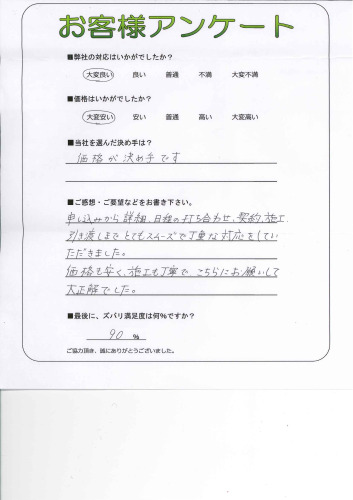 お客様アンケート
■弊社の対応はいかがでしたか？
大変良い 良い 普通 不満 大変不満
■価格はいかがでしたか？
大変安い 安い 普通 高い 大変高い
■当社を選んだ決め手は？
価格が決め手です
■ご感想・ご要望などをお書き下さい。
申し込みから詳細、日程の打ち合わせ、契約、施工、
引き渡しまでとてもスムーズで丁重な対応をしてい
ただきました。
価格も安く、施工も丁寧で、こちらにお願いして
大正解でした。
■最後に、ズバリ満足度は何%ですか？
90 %
ご協力頂き、誠にありがとうございました。